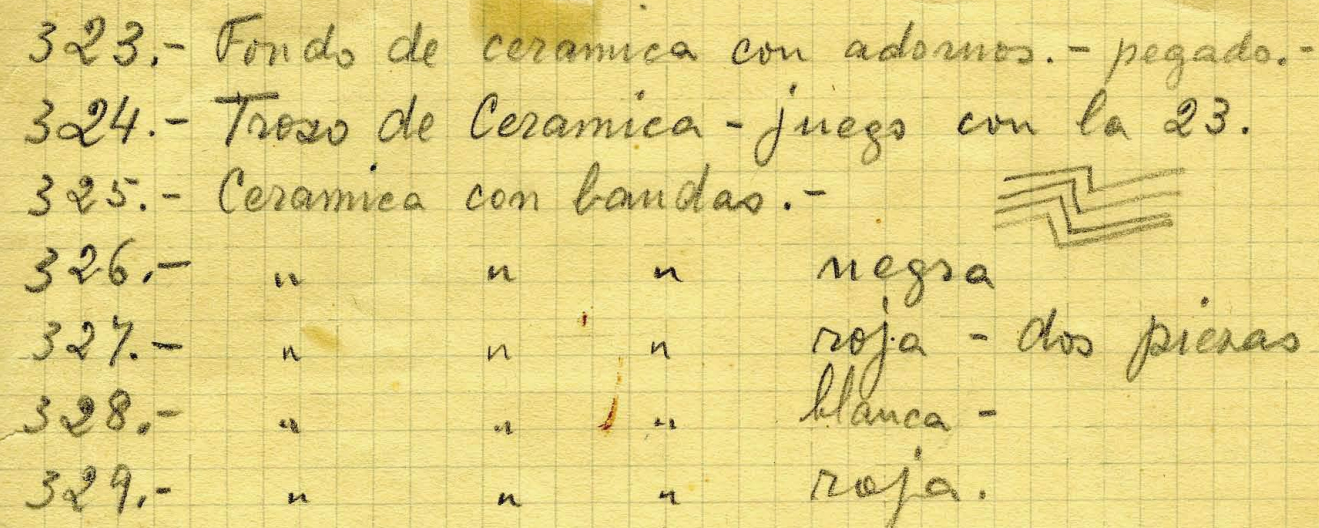 323.- Fondo de ceramica con adornos. - pegado.-
324.- Trozo de Ceramica - juego con la 23.
325.- Ceramica con bandas.-
326.- " " " negra
327.- " " " roja - dos piezas
328.- " " " blanca -
329.- " " " roja.